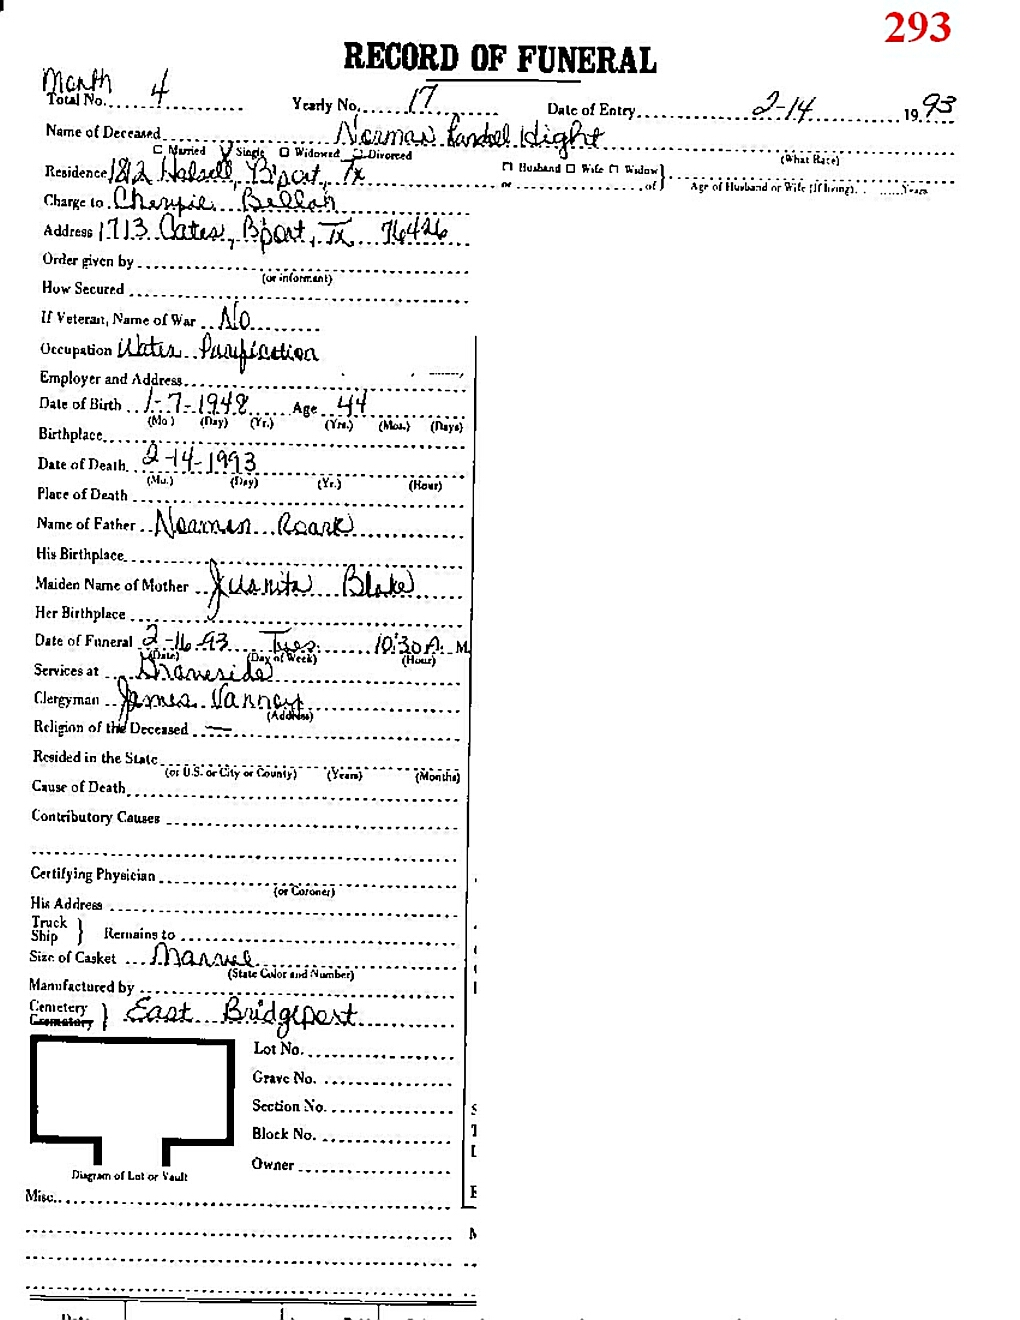 293
RECORD OF FUNERAL
Month
Total No. 4 Yearly No. 17 Date of Entry 2-14 1993
Name of Deceased Norman Randel Hight
(What Race)
Married Single Widowed Divorced
Husband Wife Widow
Residence 1812 Halsell, B'port, Tx
or of Age of Husband or Wife (If living) Years
Charge to Cherrie
Address 1713 Cates, B'port, Tx 76426
Order given by
(or informant)
How Secured
If Veteran, Name of War No
Occupation Water Purification
Employer and Address
Date of Birth 1-7-1948 Age 44
(Mo.) (Day) (Yr.) (Yrs.) (Mos.) (Days)
Birthplace
Date of Death 2-14-1993
(Mo.) (Day) (Yr.) (Hour)
Place of Death
Name of Father Norman Roark
His Birthplace
Maiden Name of Mother Juanita Blake
Her Birthplace
Date of Funeral 2-16-93 Tues. 10:30 A. M.
(Date) (Day of Week) (Hour)
Services at Graveside
Clergyman James Vanney
(Address)
Religion of the Deceased —
Resided in the State
(or U.S. or City or County) (Years) (Months)
Cause of Death
Contributory Causes
Certifying Physician
(or Coroner)
His Address
Truck
Ship } Remains to
Size of Casket
(State Color and Number)
Manufactured by
Cemetery
Crematory } East Bridgeport
Lot No.
Grave No.
Section No.
Block No.
Owner
Diagram of Lot or Vault
Misc.